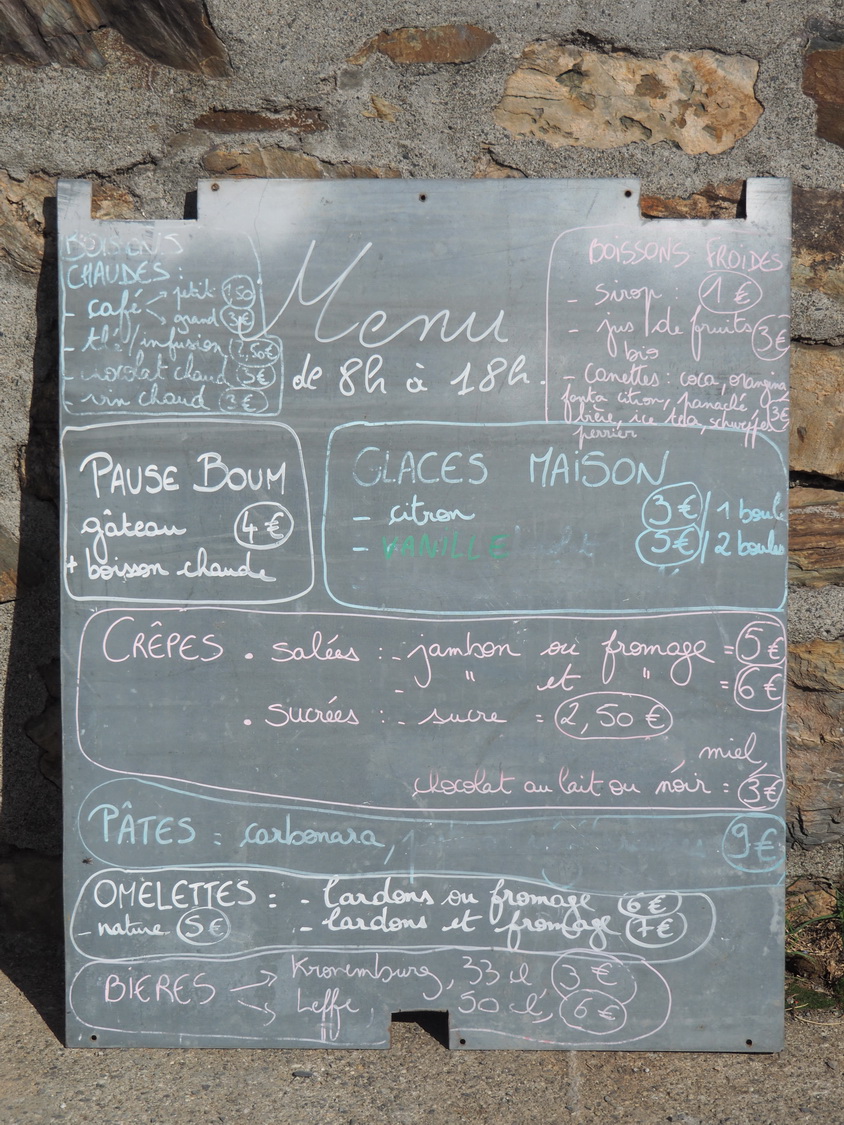 BOISSONS
CHAUDES :
- café petit 1,50
grand 3€
- thé/infusion 2,50€
- chocolat chaud 3€
- vin chaud 3€
Menu
de 8h à 18h.
BOISSONS FROIDES
- Sirop : 1 €
- jus de fruits 3€
bio
- Canettes : coca, orangina
fanta citron, panaché
bière, ice tea, schweppes 3€
perrier
PAUSE BOUM
gâteau 4€
+ boisson chaude
GLACES MAISON
- citron 3€/1 boule
- VANILLE 5€/2 boules
CRÊPES • salées :- jambon ou fromage = 5€
- " et " = 6€
• sucrées :- sucre = 2,50 €
miel,
chocolat au lait ou noir = 3€
PÂTES : carbonara, 9€
OMELETTES : - lardons ou fromage 6€
- nature 5€ - lardons et fromage 7€
BIERES → Kronembourg, 33 cl 3€
→ Leffe, 50 cl, 6€